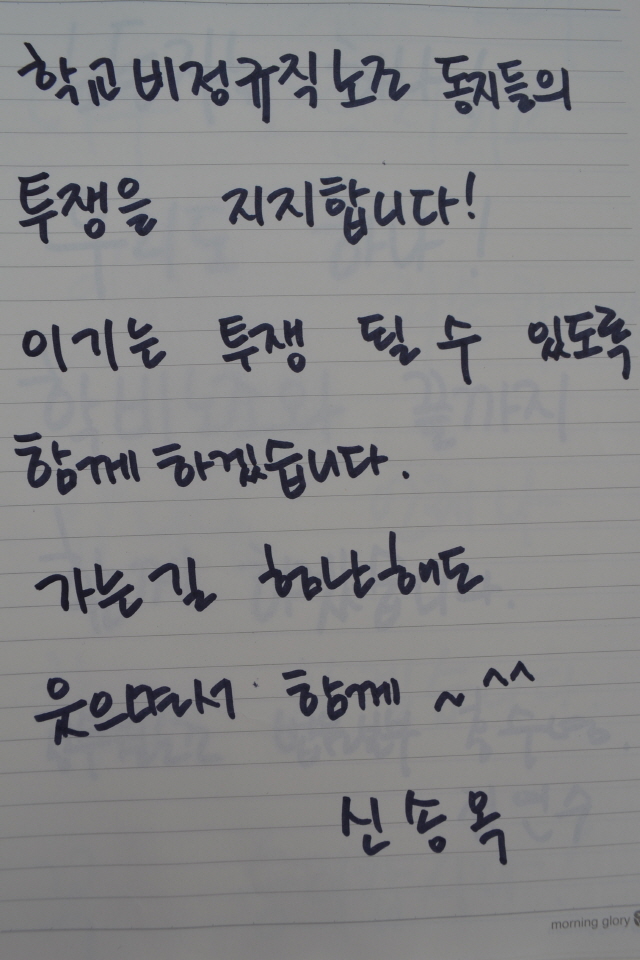 학교비정규직노조 동지들의
투쟁을 지지합니다!
이기는 투쟁 될 수 있도록
함께 하겠습니다.
가는길 험난해도
웃으며서 함께 ~ ^^
신송옥
morning glory